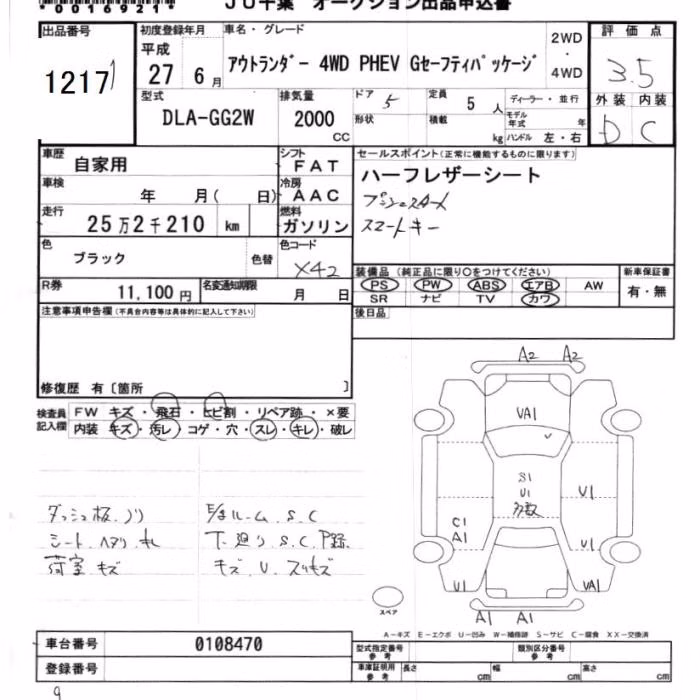 *0016921*
JU千葉 オークション出品申込書
出品番号
1217
初度登録年月
平成
27 6月
車名・グレード
アウトランダー 4WD PHEV Gセーフティパッケージ
2WD
・
4WD
評価点
3.5
型式
DLA-GG2W
排気量
2000
CC
ドア
5
定員
5人
ディーラー・並行
形状
積載
kg
モデル年式
年
ハンドル 左・右
外装 内装
D C
車歴
自家用
シフト
FAT
セールスポイント(正常に機能するものに限ります)
ハーフレザーシート
プッシュスタート
スマートキー
車検
年 月( 日)
冷房
AAC
走行
25万2千210 km
燃料
ガソリン
色
ブラック
色替
色コード
X42
装備品(純正品に限り○をつけてください)
PS PW ABS エアB AW
SR ナビ TV カワ
新車保証書
有・無
R券
11,100円
名変通知期限
月 日
後日品
注意事項申告欄(不具合内容等は具体的に記入して下さい)
修復歴 有〔箇所 〕
検査員記入欄
FW キズ・飛石・ヒビ割・リペア跡・×要
内装 キズ・汚レ・コゲ・穴・スレ・キレ・破レ
A2 A2
VA1
S1
U1
多数
U1
C1
A1
U1
U1
VA1
A1 A1
スペア
ダッシュ板、ノリ
シート、ヘタリ、キレ
荷室 キズ
E/gルーム、S、C
下廻り、S、C、P録、
キズ、U、スリキズ
A−キズ E−エクボ U−凹み W−補修跡 S−サビ C−腐食 XX−交換済
車台番号
0108470
登録番号
型式指定番号
参考
類別区分番号
参考
車庫証明用
参考
長さ
cm
幅
cm
高さ
cm
9